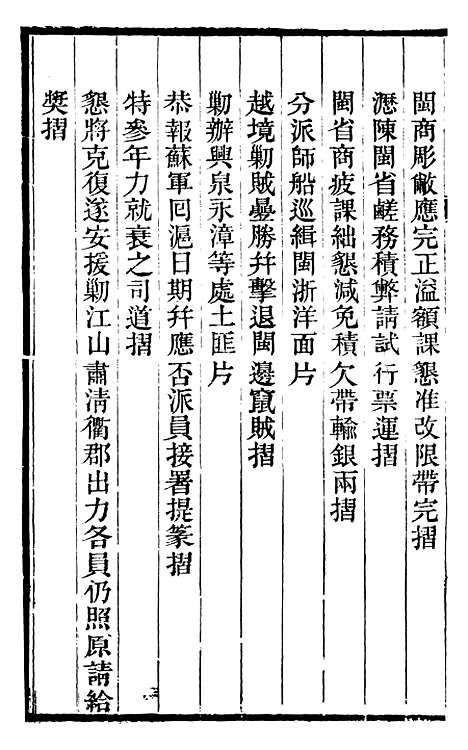 閩商彫敝應完正溢額課懇准改限帶完摺
瀝陳閩省鹺務積弊請試行票運摺
閩省商疲課絀懇減免積欠帶輸銀兩摺
分派師船巡緝閩浙洋面片
越境勦賊疊勝幷擊退閩邊竄賊摺
勦辦興泉永漳等處土匪片
恭報蘇軍回滬日期幷應否派員接署提篆摺
特參年力就衰之司道摺
懇將克復遂安援勦江山肅淸衢郡出力各員仍照原請給
奬摺